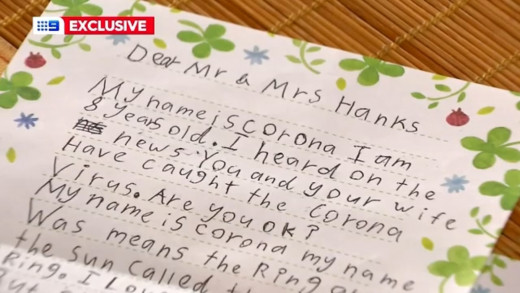 9 EXCLUSIVE
Dear Mr & Mrs Hanks
My name is corona I am
8 years old. I heard on the
news. You and your wife
Have caught the corona
Virus. Are you OK?
My name is corona my name
Was means the Ring ar
the sun called t
Ring. I L